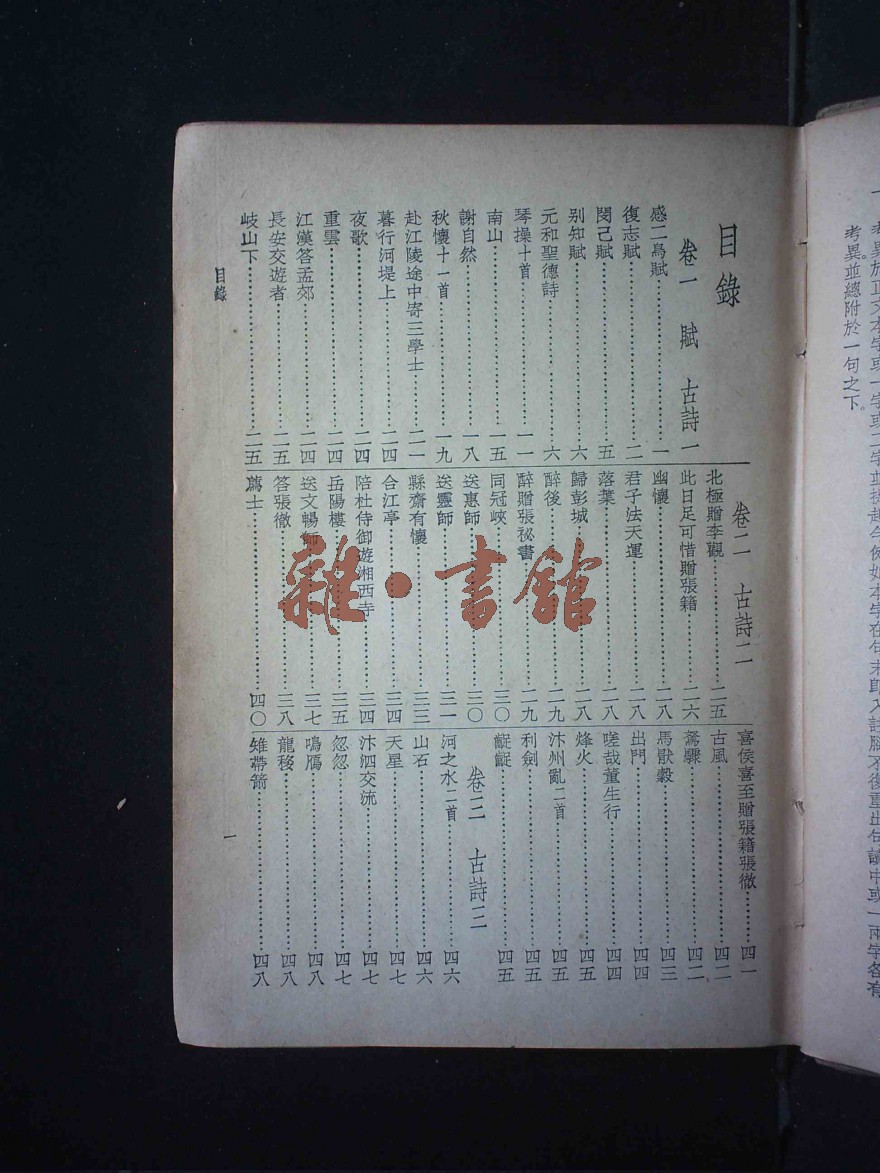 目錄
卷一 賦 古詩一
感二鳥賦 一
復志賦 二
閔己賦 五
別知賦 六
元和聖德詩 六
琴操十首 一一
南山 一五
謝自然 一八
秋懷十一首 一九
赴江陵途中寄三學士 二一
暮行河堤上 二四
夜歌 二四
重雲 二四
江漢答孟郊 二四
長安交遊者 二五
岐山下 二五
卷二 古詩二
北極贈李觀 二五
此日足可惜贈張籍 二六
幽懷 二八
君子法天運 二八
落葉 二八
歸彭城 二八
醉後 二九
醉贈張秘書 二九
同冠峽 三〇
送惠師 三〇
送靈師 三一
縣齋有懷 三三
合江亭 三四
陪杜侍御遊湘西寺 三四
岳陽樓 三五
送文暢師 三七
答張徹 三八
薦士 四〇
喜侯喜至贈張籍張徹 四一
古風 四二
駑驥 四二
馬猒穀 四三
出門 四四
嗟哉董生行 四四
烽火 四五
汴州亂二首 四五
利劍 四五
齪齪 四五
卷三 古詩三
河之水二首 四六
山石 四六
天星 四七
汴泗交流 四七
忽忽 四七
鳴鴈 四八
龍移 四八
雉帶箭 四八
目錄
一
雜·書館
考異並總附於一句之下。